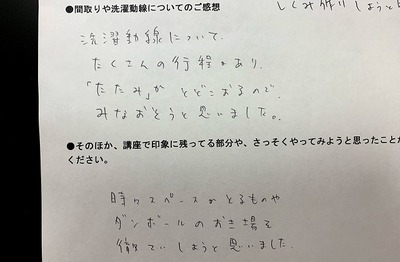 しくみ作りしようと
●間取りや洗濯動線についてのご感想
洗濯動線について、
たくさんの行程があり、
「たたみ」が とどこおるので、
みなおそうと思いました。
●そのほか、講座で印象に残ってる部分や、さっそくやってみようと思ったことが
ください。
時々スペースがとるものや
ダンボールのおき場を
しようと思いました。